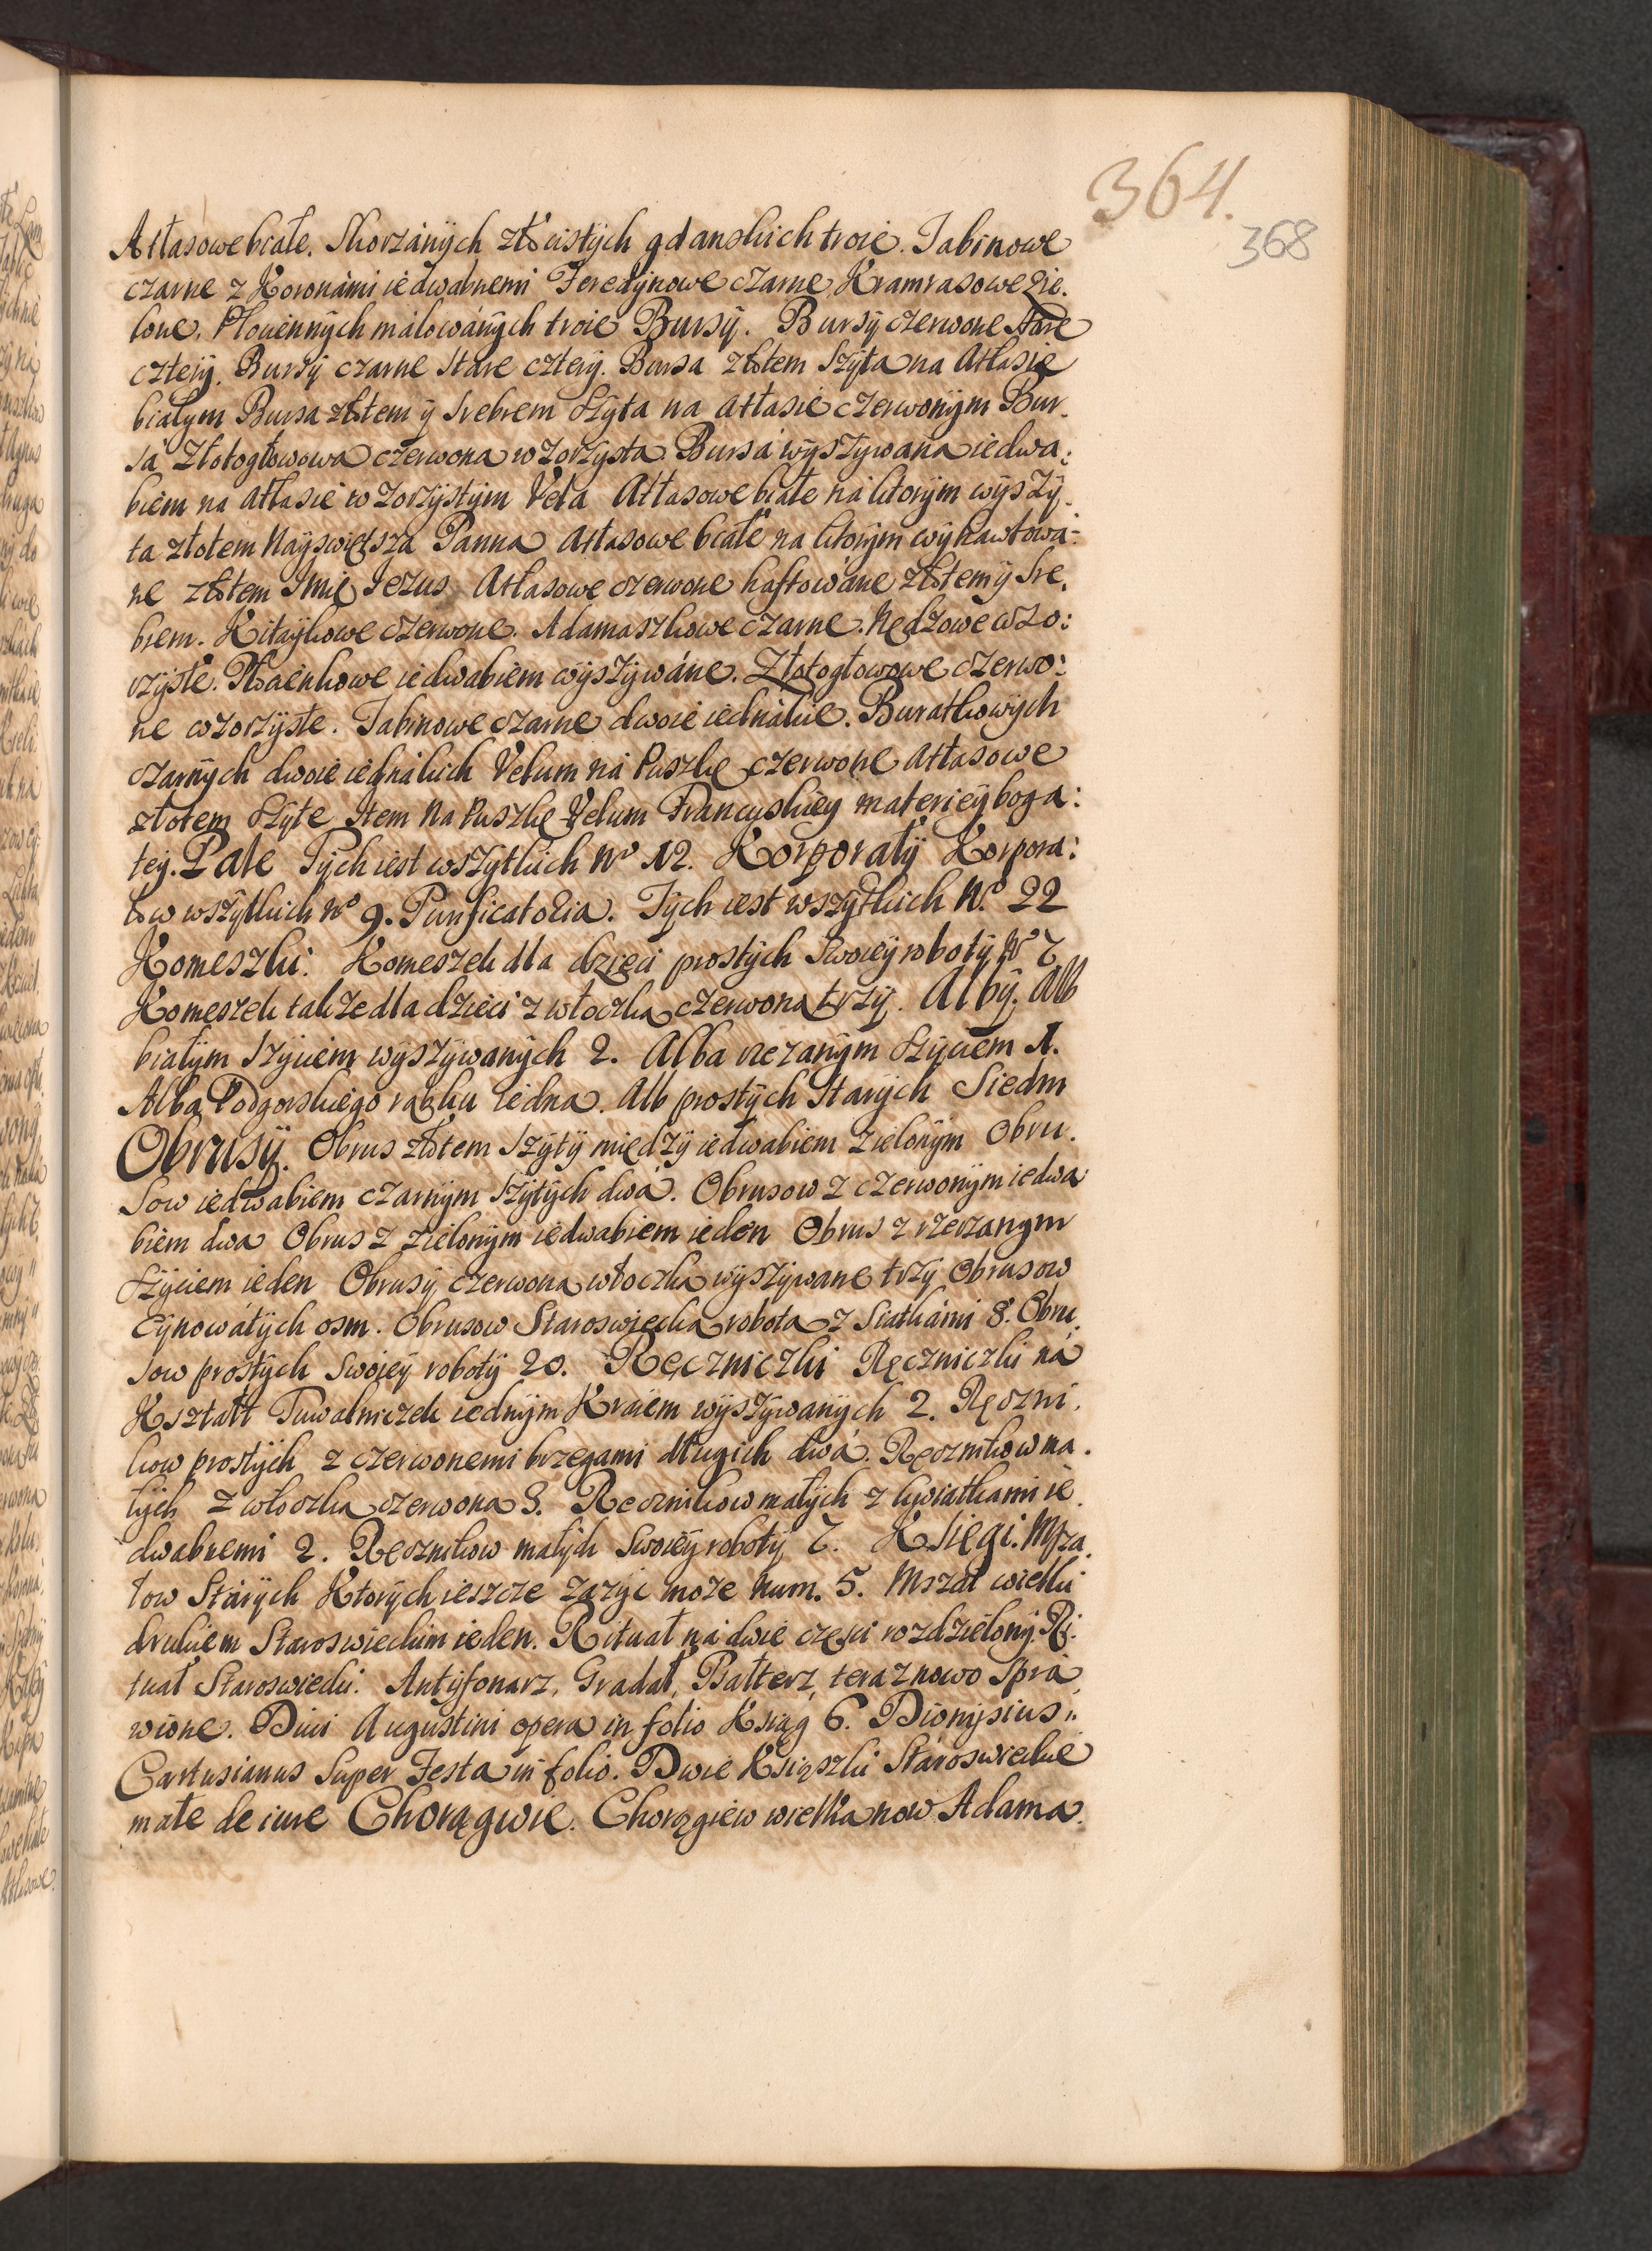 364.
368
Atłasowe białe. Skorzánÿch złocistÿch gdanskich troie. Tabinowe
czarne z Koronámi iedwabnemi Feredÿnowe czarne, Kramrasowe Zie.
lone. Płociennÿch málowánÿch troie Bursÿ. Bursÿ czerwone stare
czterÿ. Bursÿ czarne stare czterÿ. Bursa złotem szÿta na Atłasie
białym Bursa złotem ÿ srebrem szÿta na Atłasie czerwonÿm Bur.
sá Złotogłowowa czerwona wzorzÿsta Bursá wÿszÿwana iedwa:
biem na Atłasie wzorzÿstÿm Vela Atłasowe białe ná ktorÿm wÿszÿ.
ta złotem Nayswiętsza Panna Atłasowe białe na ktorÿm wÿhawtowa:
ne złotem Imię Jezus Atłasowe czerwone haftowáne złotem ÿ sre,
brem. Kitaÿkowe czerwone. Adamaszkowe czarne. Nędzowe wzo:
rzÿste. Płocienkowe iedwabiem wÿszÿwáne. Złotogłowowe czerwo:
ne wzorzÿste. Tabinowe czarne dwoie iednákie. Buratkowÿch
czarnÿch dwoie iednákich Velum ná Puszkę czerwone Atłasowe
złotem szÿte Item Na Puszkę Velum Francuskieÿ materieÿ boga:
teÿ. Pale Tÿch iest wszÿtkich No 12. Korporałÿ Korpora:
łow wszÿtkich No 9. Purificatoria. Tÿch iest wszÿtkich No. 22
Komeszki: Komeszek dla dzieci prostÿch swoieÿ robotÿ No 7
Komeszek także dla dzieci z włoczką czerwoną trzÿ. Albÿ. Alb
białym szÿciem wÿszÿwanÿch 2. Alba rzezanÿm szÿciem 1.
Alba Podgorskiego rąbku iedna. Alb prostÿch starÿch siedm
Obrusÿ. Obrus złotem szÿtÿ międzÿ iedwabiem zielonÿm Obru.
sow iedwabiem czarnÿm szÿtÿch dwá. Obrusow z czerwonÿm iedwa
biem dwa Obrus z zielonÿm iedwabiem ieden Obrus z rzezanym
szÿciem ieden Obrusÿ czerwona włoczką wÿszÿwane trzÿ Obrusow
Cÿnowátÿch osm. Obrusow Staroswiecką robotą z siatkámi 8. Obru,
sow prostÿch swoieÿ robotÿ 20. Ręczniczki Ręczniczki ná
Kształt Tuwalniczek iednÿm Kraiem wÿszÿwanÿch 2. Ręczni,
kow prostÿch z czerwonemi brzegami długich dwá. Ręcznikow ma.
łÿch z włoczką czerwoną 8. Ręcznikow małÿch z kwiatkami ie.
dwabnemi 2. Ręcznikow małÿch swoieÿ robotÿ 7. Księgi. Msza.
łow stárÿch Ktorÿch ieszcze zazÿc może Num. 5. Mszał wielki
drukiem Staroswieckim ieden. Rituał ná dwie częsci rozdzielonÿ. Ri.
tuał Staroswiecki. Antÿfonarz, Gradał, Psałterz, teraz nowo sprá,
wione. Diui Augustini opera in folio Ksiąg 6. Dionÿsius
Cartusianus super Festa in folio. Dwie Książki Stároswieckie
małe de iure Chorągwie. Chorągiew wielka now. Adama.